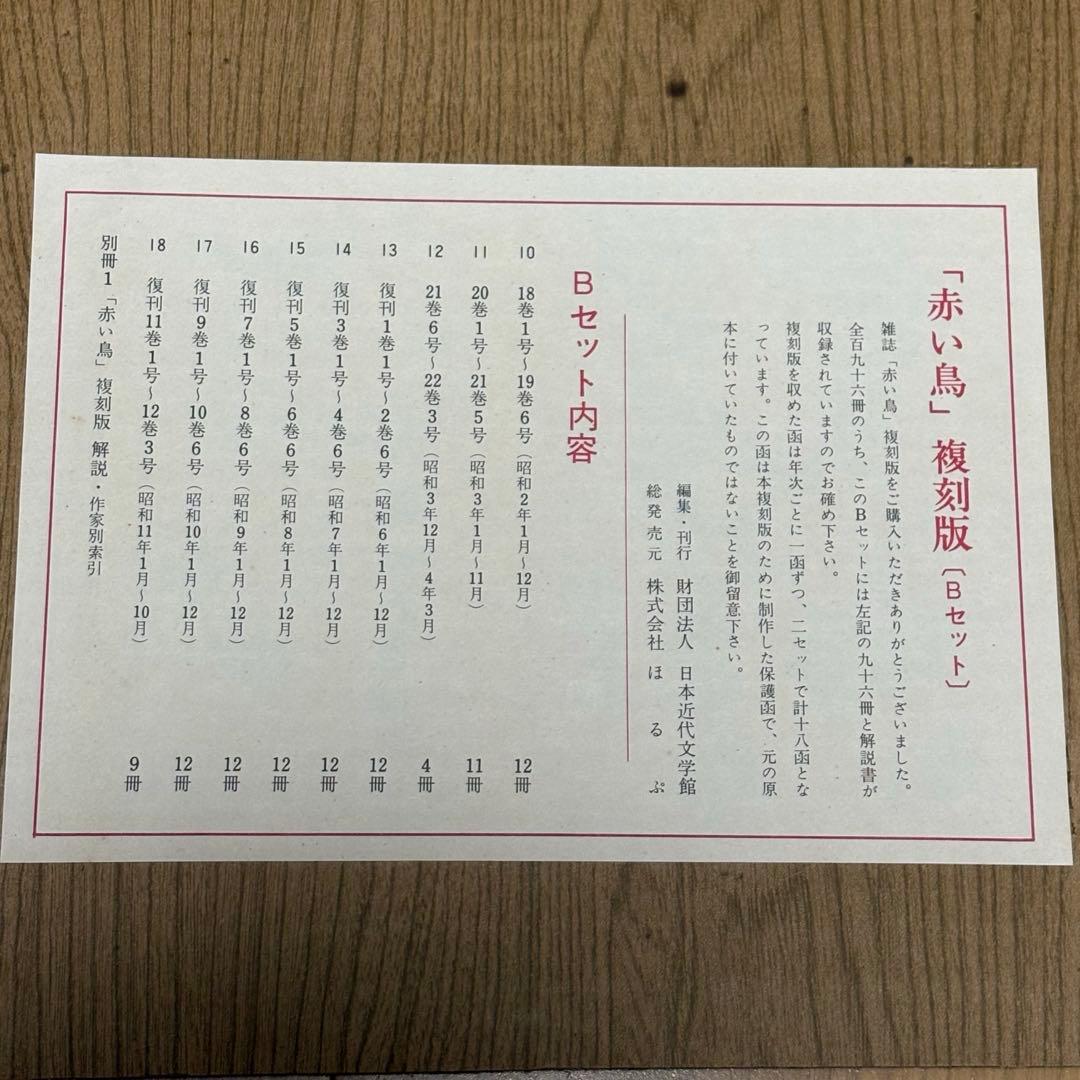 「赤い鳥」複刻版〔Bセット〕
雑誌「赤い鳥」複刻版をご購入いただきありがとうございました。
全百九十六冊のうち、このBセットには左記の九十六冊と解説書が
収録されていますのでお確め下さい。
複刻版を収めた函は年次ごとに一函ずつ、二セットで計十八函とな
っています。この函は本複刻版のために制作した保護函で、元の原
本に付いていたものではないことを御留意下さい。
編集・刊行 財団法人 日本近代文学館
総発売元 株式会社 ほるぷ
Bセット内容
10 18巻1号〜19巻6号(昭和2年1月〜12月) 12冊
11 20巻1号〜21巻5号(昭和3年1月〜11月) 11冊
12 21巻6号〜22巻3号(昭和3年12月〜4年3月) 4冊
13 復刊1巻1号〜2巻6号(昭和6年1月〜12月) 12冊
14 復刊3巻1号〜4巻6号(昭和7年1月〜12月) 12冊
15 復刊5巻1号〜6巻6号(昭和8年1月〜12月) 12冊
16 復刊7巻1号〜8巻6号(昭和9年1月〜12月) 12冊
17 復刊9巻1号〜10巻6号(昭和10年1月〜12月) 12冊
18 復刊11巻1号〜12巻3号(昭和11年1月〜10月) 9冊
別冊1「赤い鳥」複刻版 解説・作家別索引